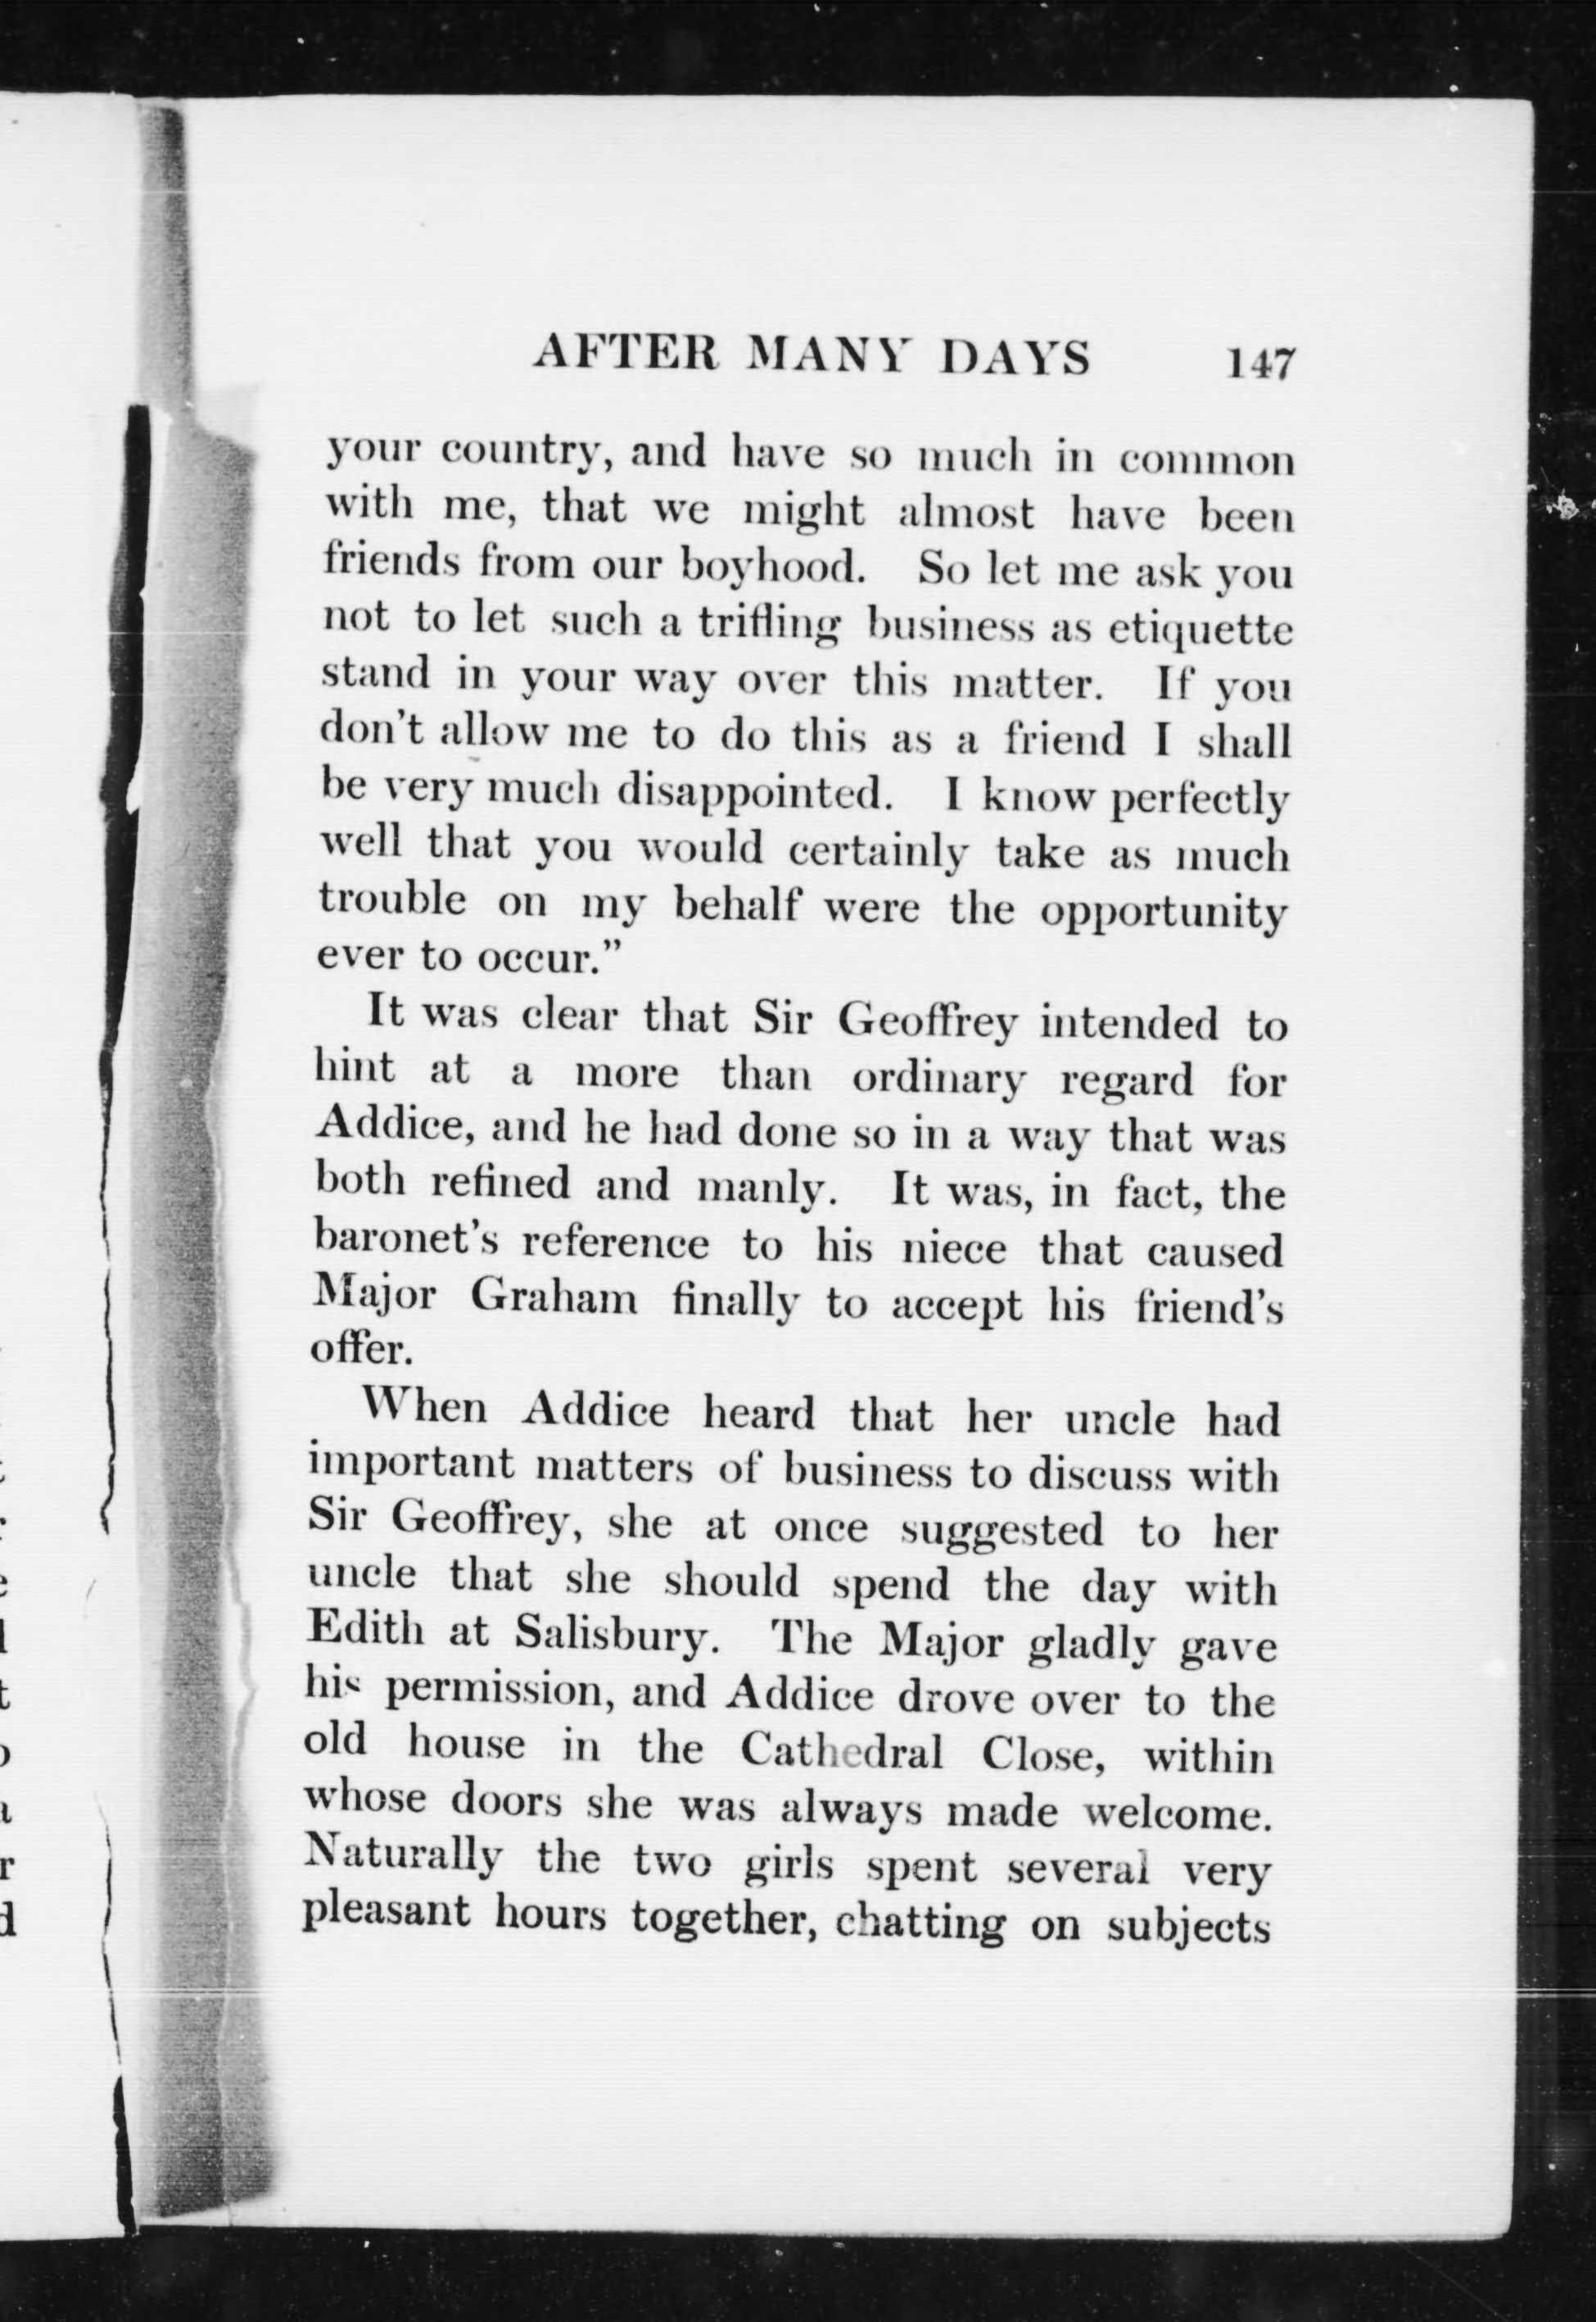 AFTER MANY DAYS 147
your country, and have so much in common
with me, that we might almost have been
friends from our boyhood. So let me ask you
not to let such a trifling business as etiquette
stand in your way over this matter. If you
don't allow me to do this as a friend I shall
be very much disappointed. I know perfectly
well that you would certainly take as much
trouble on my behalf were the opportunity
ever to occur.”
It was clear that Sir Geoffrey intended to
hint at a more than ordinary regard for
Addice, and he had done so in a way that was
both refined and manly. It was, in fact, the
baronet's reference to his niece that caused
Major Graham finally to accept his friend's
offer.
When Addice heard that her uncle had
important matters of business to discuss with
Sir Geoffrey, she at once suggested to her
uncle that she should spend the day with
Edith at Salisbury. The Major gladly gave
his permission, and Addice drove over to the
old house in the Cathedral Close, within
whose doors she was always made welcome.
Naturally the two girls spent several very
pleasant hours together, chatting on subjects